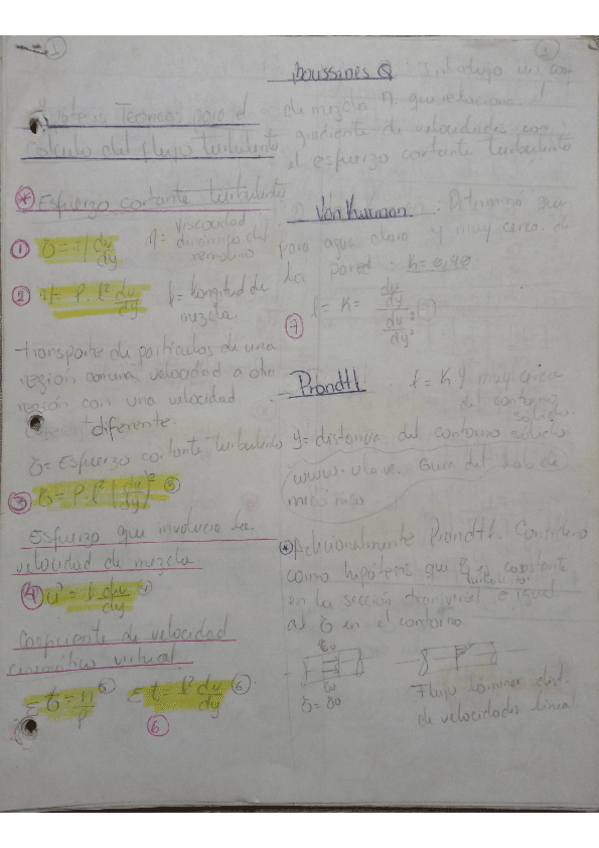 1
Hipótesis Teóricas para el
Calculo del flujo turbulento
* Esfuerzo cortante turbulento
① τ = η du/dy η = Viscosidad
dinamica del
remolino
② η = ρ.l² du/dy l = longitud de
mezcla.
transporte de particulas de una
región con una velocidad a otra
región con una velocidad
diferente.
τ = Esfuerzo cortante turbulento
③ τ = ρ.l² (du/dy)² ③
Esfuerzo que involucra la
velocidad de mezcla
④ u' = l du/dy ④
Coeficiente de velocidad
cinematico virtual.
ετ = η/ρ ⑤ ετ = l² du/dy ⑥
⑥
1
Boussines Q : Introdujo un
de mezcla η que relaciona el
gradiente de velocidades con
el esfuerzo cortante turbulento
Von Kurman : Determinó que
para agua clara y muy cerca de
la pared : K = 0,40
⑦ l = K = du/dy / du²/dy²
Prandtl : l = K.y muy cerca
del contorno
solido.
y = distancia del contorno solido.
www.ula.ve. Guia del lab de
mecánica
* Adicionalmente Prandtl. Considero
como hipótesis que τ es constante
turbulento
en la sección transversal e igual
al τ en el contorno
τo
τo
τ = τo
Flujo laminar dist.
de velocidades lineal